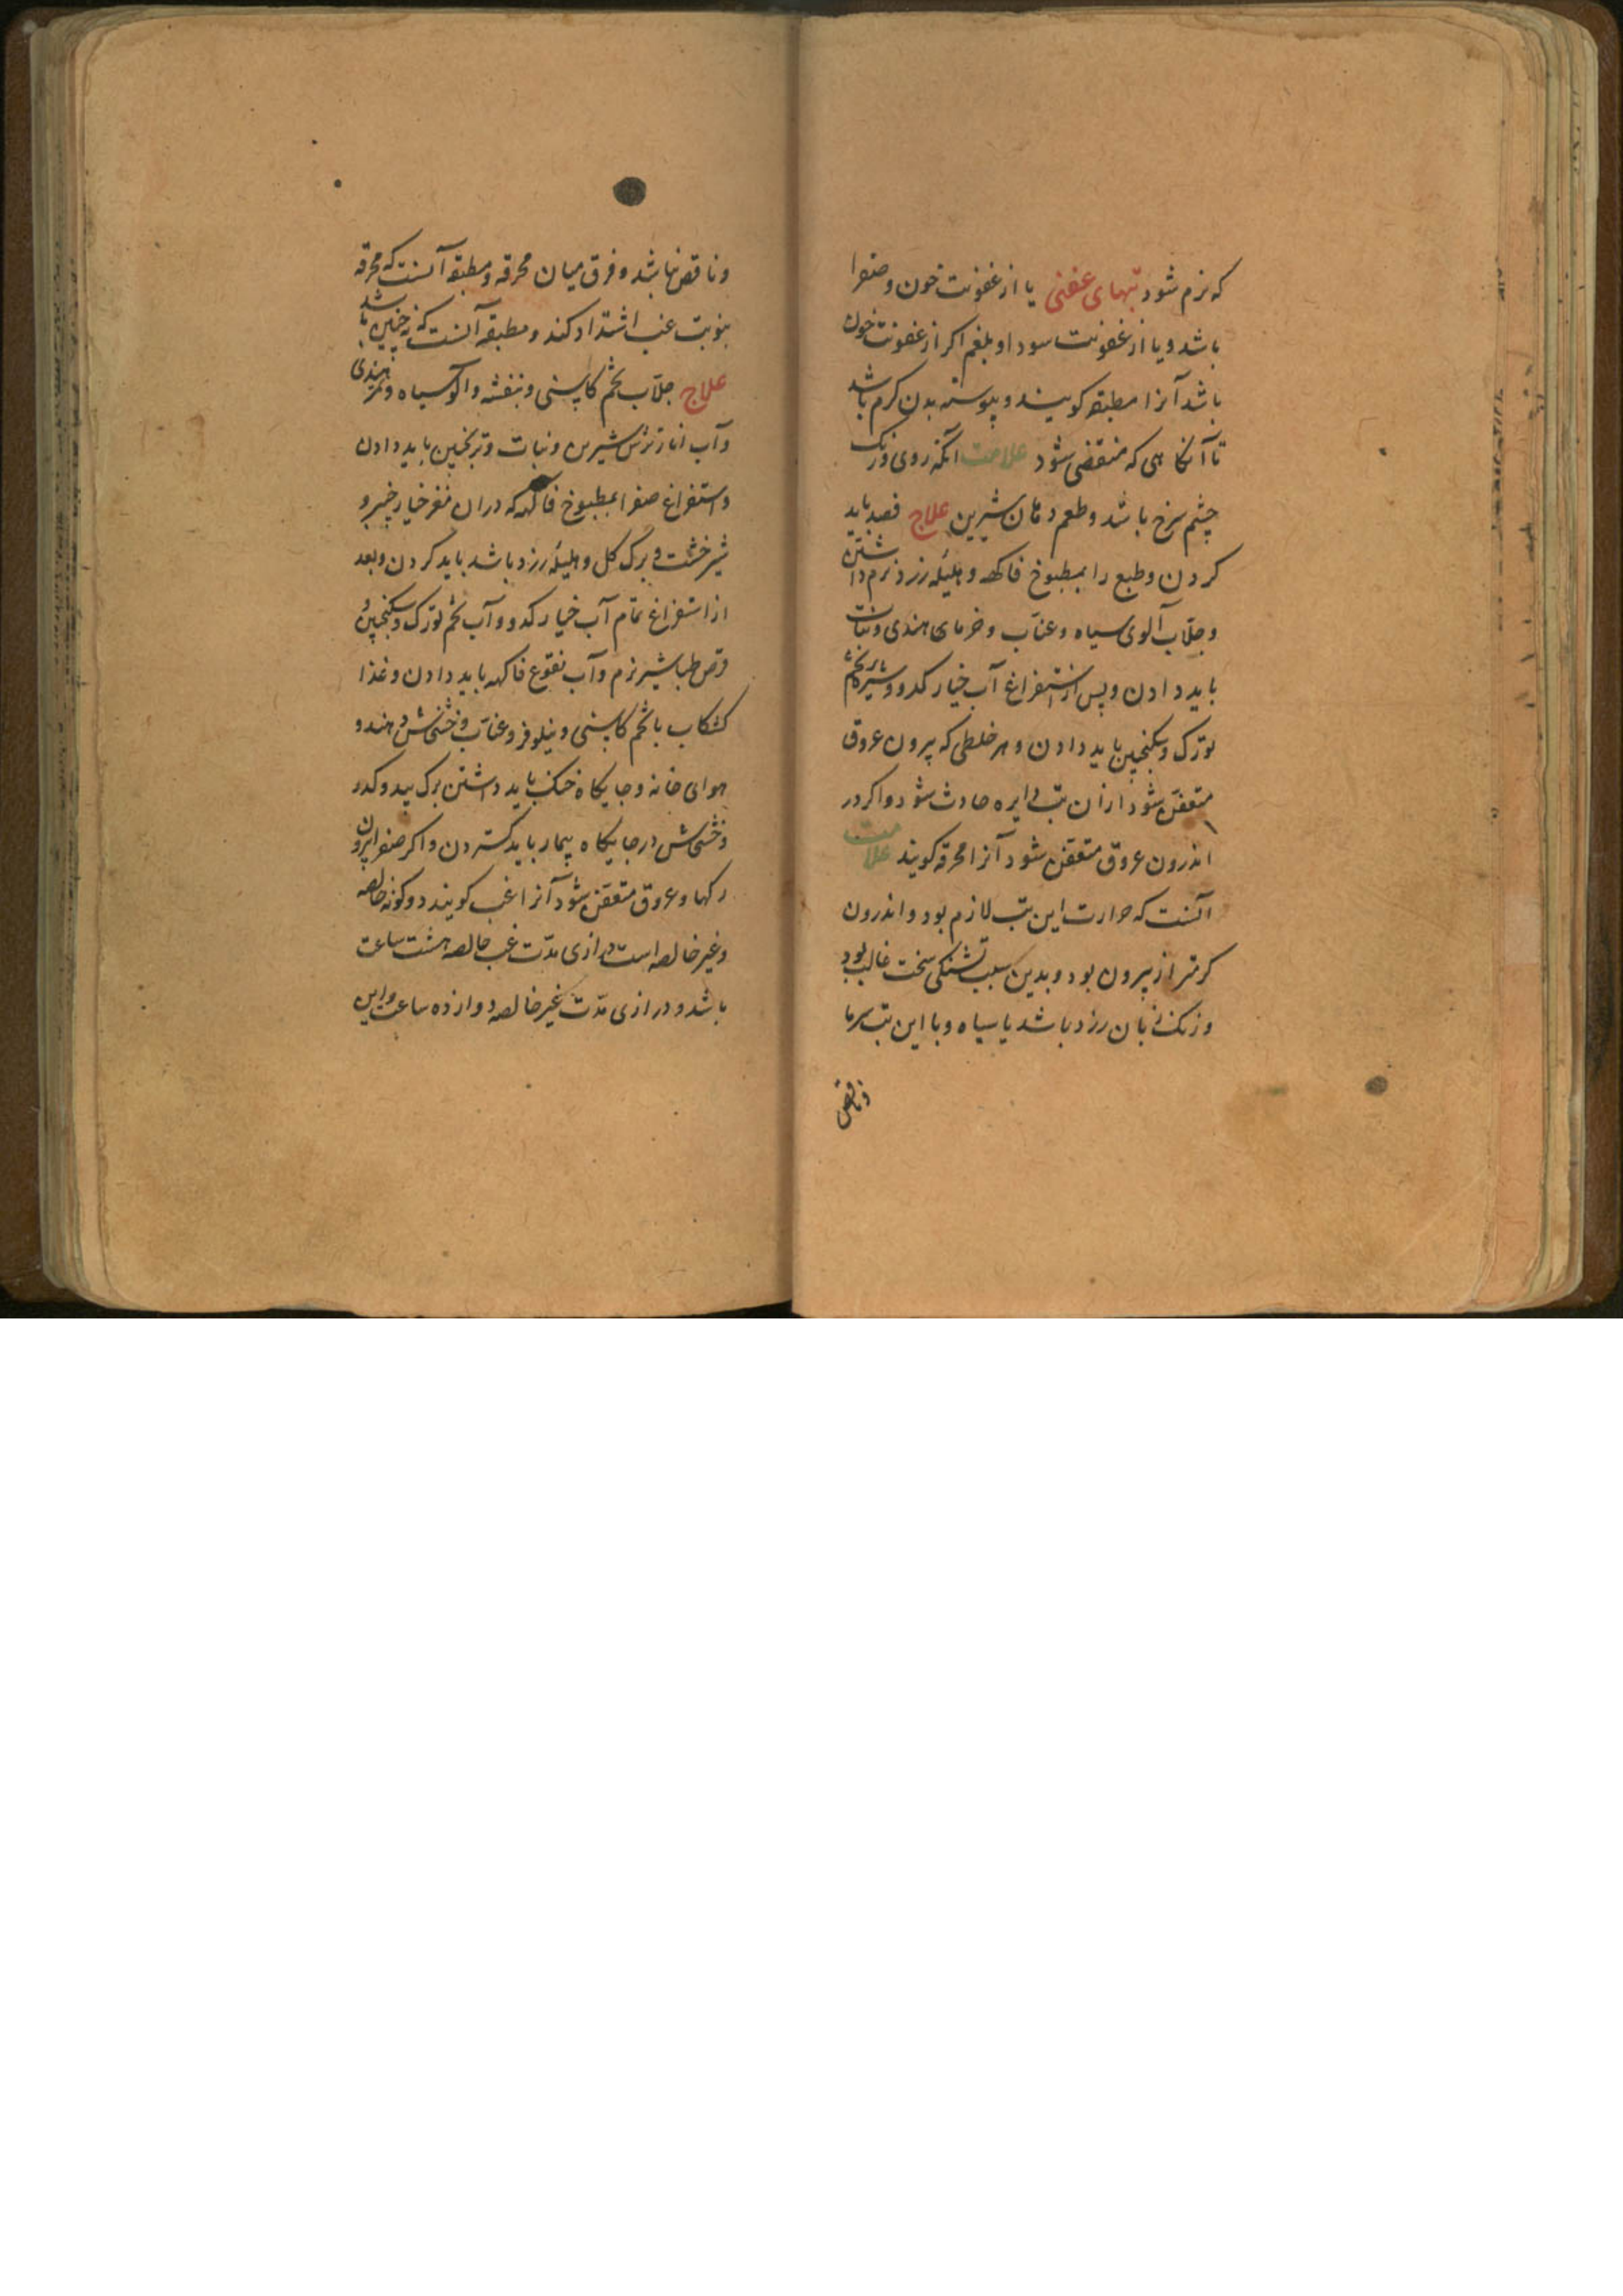 که نرم شود تبهای عفنی یا از عفونت خون و صفرا
باشد و یا از عفونت سودا و بلغم اکر از عفونت خون
باشد آنرا مطبقه کویند و پیوسته بدن کرم باشد
تا آنکاهی که منقضی شود علامت آنکه روی و رنک
چشم سرخ باشد و طعم دهان شیرین علاج فصد باید
کردن و طبع را بمطبوخ فاکهه و هلیله زرد نرم داشتن
و جلّاب آلوی سیاه و عنّاب و خرمای هندی و نبات
باید دادن و پس از استفراغ آب خیار کدو و شیره تخم
تورک و سکنجبین باید دادن و هر خلطی که بیرون عروق
متعفن شود ازان تب دایره حادث شود و اکر در
اندرون عروق متعفن شود آنرا محرقه کویند علامت
آنست که حرارت این تب لازم بود و اندرون
کرمتر از بیرون بود و بدین سبب تشنکی سخت غالب بود
و رنک زبان زرد باشد یا سیاه و با این تب سرما
و ناقص
و ناقص نباشد و فرق میان محرقه و مطبقه آنست که محرقه
بنوبت غب اشتداد کند و مطبقه آنست که نه چنین باشد
علاج جلّاب تخم کاسنی و بنفشه و آلو سیاه و تمر هندی
و آب انار ترش شیرین و نبات و ترنجبین باید دادن
و استفراغ صفرا بمطبوخ فاکهه که دران مغز خیار چنبر و
شیرخشت و برک کل و هلیله زرد باشد باید کردن و بعد
از استفراغ تمام آب خیار کدو و آب تخم تورک و سکنجبین و
قرص طباشیر نرم و آب نقوع فاکهه باید دادن و غذا
کشکاب با تخم کاسنی و نیلوفر و عنّاب و خشخاش دهند و
هوای خانه و جایکاه خنک باید داشتن برک بید و کدو
و خشخاش در جایکاه بیمار باید کستردن و اکر صفرا بیرون
رکها و عروق متعفن شود آنرا غب کویند دو کونه خالصه
و غیر خالصه است درازی مدّت غب خالصه هشت ساعت
باشد و درازی مدّت غیر خالصه دوازده ساعت و این